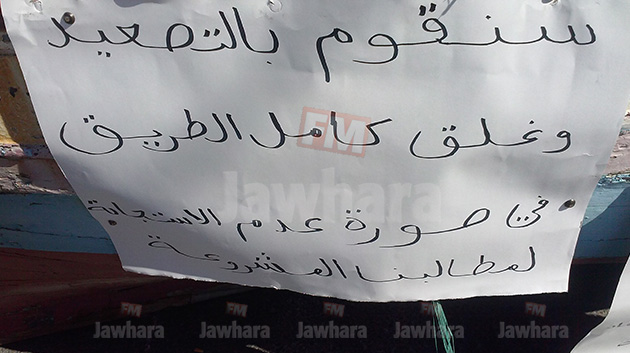 سنقوم بالتصعيد
وغلق كامل الطريق
في صورة عدم الاستجابة
لمطالبنا المشروعة
FM
Jawhara
FM FM FM FM FM
Jawhara Jawhara Jawhara Jawhara Jawhara